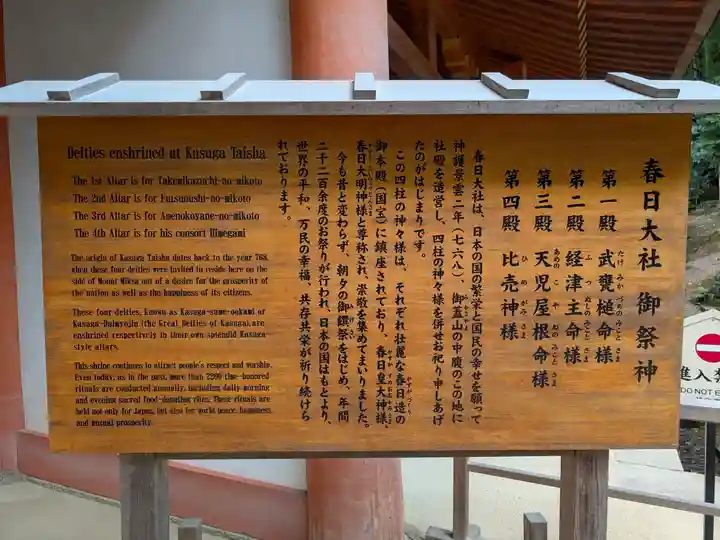 春日大社 御祭神
第一殿 武甕槌命様
たけみかづちのみことさま
第二殿 経津主命様
ふつぬしのみことさま
第三殿 天児屋根命様
あめのこやねのみことさま
第四殿 比売神様
ひめがみさま
春日大社は、日本の国の繁栄と国民の幸せを願って
神護景雲二年(七六八)、御蓋山の中腹のこの地に
社殿を造営し、四柱の神々様を併せお祀り申しあげ
たのがはじまりです。
この四柱の神々様は、それぞれ壮麗な春日造の
御本殿(国宝)に鎮座されており、春日皇大神様、
春日大明神様と尊称され、崇敬を集めてまいりました。
今も昔と変わらず、朝夕の御饌祭をはじめ、年間
二千二百余度のお祭りが行われ、日本の国はもとより、
世界の平和、万民の幸福、共存共栄が祈り続けら
れております。
Deities enshrined at Kasuga Taisha
The 1st Altar is for Takemikazuchi-no-mikoto
The 2nd Altar is for Futsunushi-no-mikoto
The 3rd Altar is for Amenokoyane-no-mikoto
The 4th Altar is for his consort Himegami
The origin of Kasuga Taisha dates back to the year 768,
when these four deities were invited to reside here on the
side of Mount Mikasa out of a desire for the prosperity of
the nation as well as the happiness of its citizens.
These four deities, known as Kasuga-sume-ookami or
Kasuga-Daimyojin (the Great Deities of Kasuga), are
enshrined respectively in their own splendid Kasuga-
style altars.
This shrine continues to attract people's respect and worship.
Even today, as in the past, more than 2200 time-honored
rituals are conducted annually, including daily morning
and evening sacred food-donating rites. These rituals are
held not only for Japan, but also for world peace, happiness
and mutual prosperity.
進入禁
DO NOT E